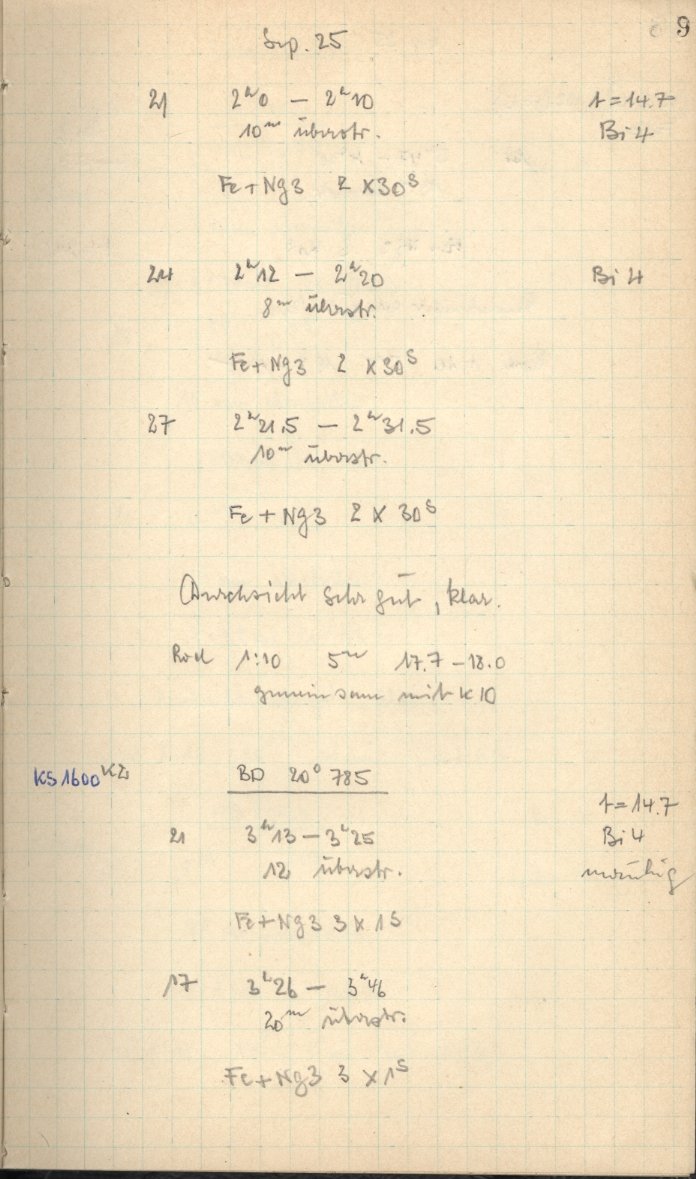 9
Sep. 25
21 2ʰ0 – 2ʰ10 t = 14.7
10ᵐ überstr. Bi 4
Fe + Ng3 2 x 30ˢ
24 2ʰ12 – 2ʰ20 Bi 4
8ᵐ überstr.
Fe + Ng3 2 x 30ˢ
27 2ʰ21.5 – 2ʰ31.5
10ᵐ überstr.
Fe + Ng3 2 x 30ˢ
Durchsicht sehr gut, klar.
1:10 5ᵐ 17.7 – 18.0
gemeinsam mit K10
KS 1600 K2 BD 20° 785
t = 14.7
21 3ʰ13 – 3ʰ25 Bi 4
12 überstr. unruhig
Fe + Ng3 3 x 1S
17 3ʰ26 – 3ʰ46
20ᵐ überstr.
Fe + Ng3 3 x 1ˢ